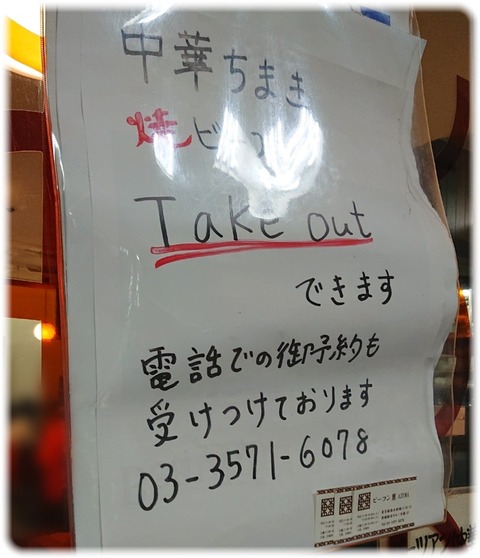 中華ちまき
焼ビーフン
Take out
できます
電話での御予約も
受けつけております
03-3571-6078
ビーフン 東